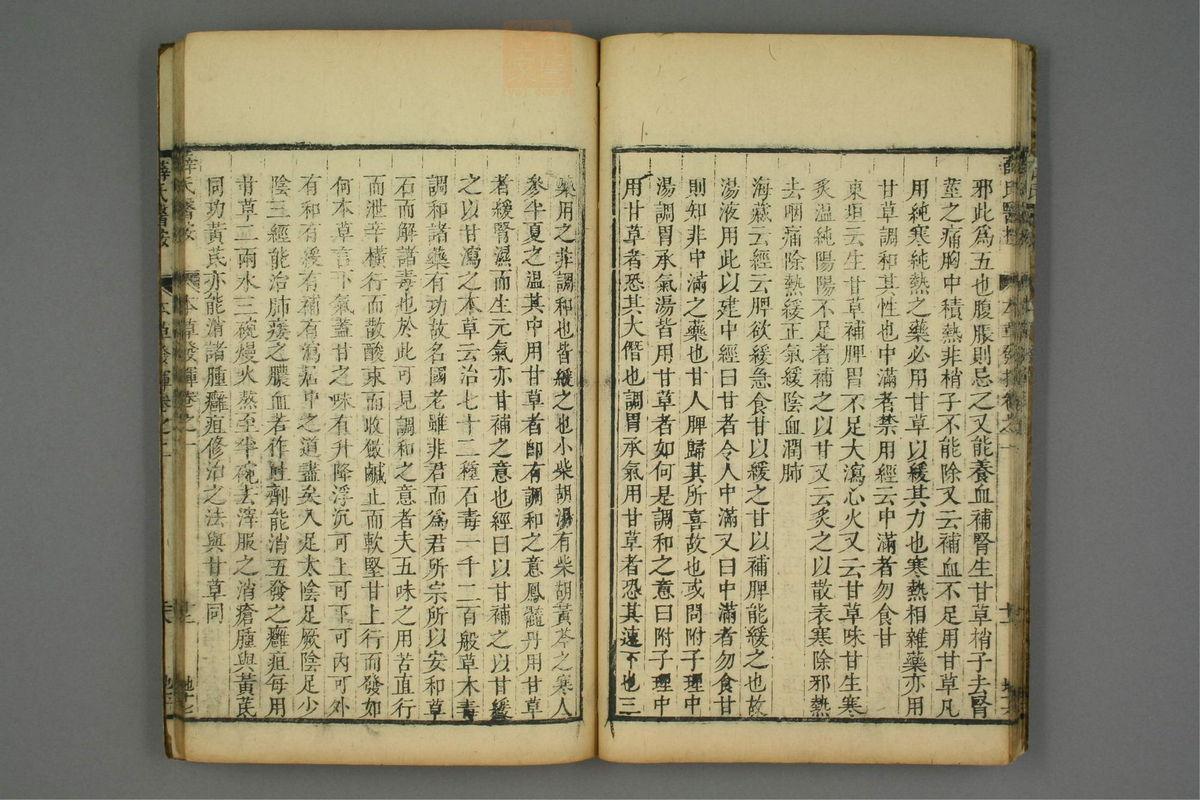 邪此爲五也腹脹則忌之又能養血補腎生甘草梢子去腎
莖之痛胸中積熱非梢子不能除又云補血不足用甘草凡
用純寒純熱之藥必用甘草以緩其力也寒熱相雜藥亦用
甘草調和其性也中滿者禁用經云中滿者勿食甘
東垣云生甘草補脾胃不足大瀉心火又云甘草味甘生寒
炙溫純陽陽不足者補之以甘又云炙之以散表寒除邪熱
去咽痛除熱緩正氣緩陰血潤肺
海藏云經云脾欲緩急食甘以緩之甘以補脾能緩之也故
湯液用此以建中經曰甘者令人中滿又曰中滿者勿食甘
則知非中滿之藥也甘人脾歸其所喜故也或問附子理中
湯調胃承氣湯皆用甘草者如何是調和之意曰附子理中
用甘草者恐其大僭也調胃承氣用甘草者恐其速下也三
藥用之非調和也皆緩之也小柴胡湯有柴胡黃芩之寒人
參半夏之溫其中用甘草者卽有調和之意鳳髓丹用甘草
者緩腎濕而生元氣亦甘補之意也經曰以甘補之以甘緩
之以甘瀉之本草云治七十二種石毒一千二百般草木毒
調和諸藥有功故名國老雖非君而爲君所宗所以安和草
石而解諸毒也於此可見調和之意者夫五味之用苦直行
而泄辛橫行而散酸束而收斂鹹止而軟堅甘上行而發如
何本草言下氣蓋甘之味有升降浮沉可上可下可內可外
有和有緩有補有瀉居中之道盡矣入足太陰足厥陰足少
陰三經能治肺痿之膿血若作吐劑能消五發之癰疽每用
甘草二兩水三碗熳火熬至半碗去滓服之消瘡腫與黃芪
同功黃芪亦能消諸腫癰疽修治之法與甘草同
薛氏醫案
本草發揮卷之一
地十七